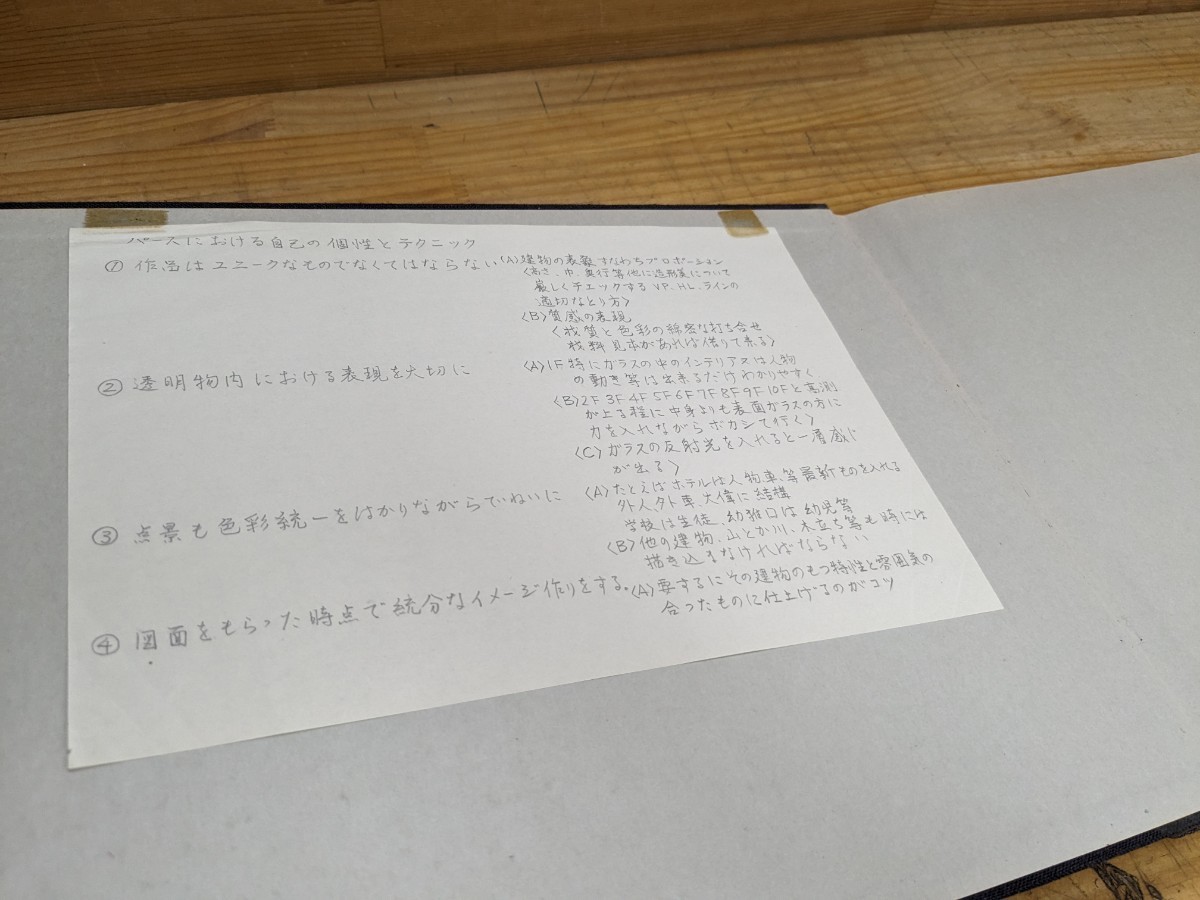 パースにおける自己の個性とテクニック
① 作品はユニークなものでなくてはならない
〈A〉建物の表觀すなわちプロポーション
〈高さ、巾、奥行等他に造形美について
厳しくチェックする VP、HL、ラインの
適切なとり方〉
〈B〉質感の表現
〈材質と色彩の綿密な打ち合せ
材料見本があれば借りて来る〉
② 透明物内における表現を大切に
〈A〉1F特にガラスの中のインテリアスは人物
の動き等は出来るだけわかりやすく
〈B〉2F 3F 4F 5F 6F 7F 8F 9F 10Fと高測
が上る程に中身よりも表面ガラスの方に
力を入れながらボカシて行く〉
〈C〉ガラスの反射光を入れると一層感じ
が出る〉
③ 点景も色彩統一をはかりながらていねいに
〈A〉たとえばホテルは人物車、等最新ものを入れる
外人、外車、大偉に結構
学校は生徒、幼稚口は幼児等
〈B〉他の建物、山とか川、木立ち等も時には
描き込るなければならない
④ 図面をもらった時点で統分なイメージ作りをする。
〈A〉要するにその建物のもつ特性と雰囲気の
合ったものに仕上げるのがコツ